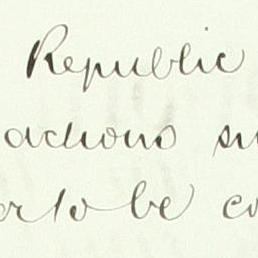 Republic
actions su
or to be co